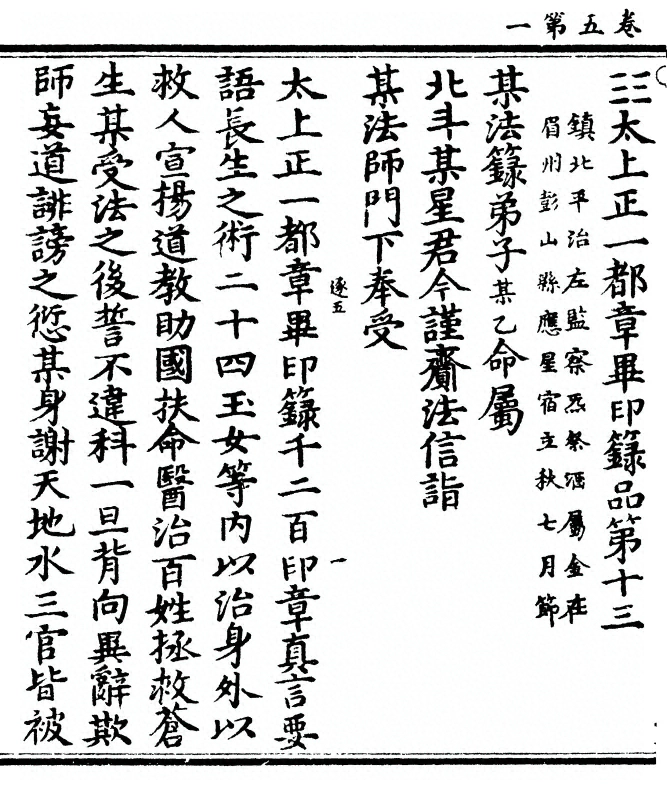 卷五第一
三三太上正一都章畢印籙品第十三
鎮北平治左監察炁祭酒屬金在
眉州彭山縣應星宿立秋七月節
某法籙弟子某乙命屬
北斗某星君今謹齎法信詣
某法師門下奉受
逐五
一
太上正一都章畢印籙千二百印章真言要
語長生之術二十四玉女等內以治身外以
救人宣揚道教助國扶命醫治百姓拯救蒼
生某受法之後誓不違科一旦背向異辭欺
師妄道誹謗之愆某身謝天地水三官皆被